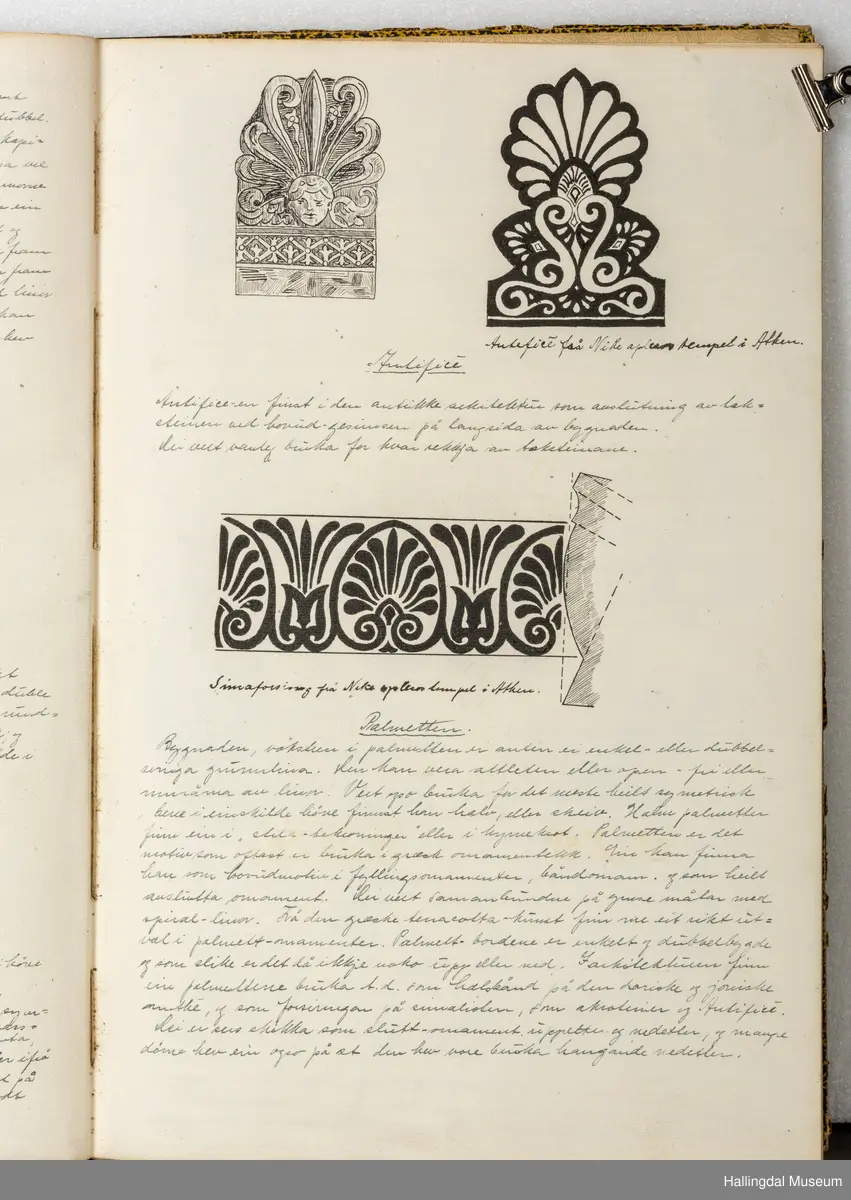 Antefice frå Nike apteros tempel i Athen.
Antifice
Antifice-en finst i den antikke arkitektur som avslutning av tak=
steinen ved hovud-gesimsen på langsida av bygnaden.
Dei vert vanleg bruka for kvar rekkja av taksteinane.
Simaforsiring frå Nike apteros tempel i Athen.
Palmetten.
Bygnaden, vóksten i palmetten er anten ei enkel- eller dubbel=
svinga grunnlina. Den kan vera attleten eller open - fri eller
innråma av linor. Vert ogso bruka for det meste heilt symetrisk
, berre i einskilde höve finnst han halv, eller skeiv. Halve palmetter
finn ein i eller i Palmetten er det
motiv som oftast er bruka i græsk ornamentikk. Ein kan finna
han som hovudmotiv i fyllingsornamenter, båndornam. og som heilt
avslutta ornament. Dei vert samanbundne på ymse måtar med
spiral-linor. Frå den græske teracotta-kunst finn me eit rikt ut=
val i palmett-ornamenter. Palmett-bordene er enkelt og dubbelbygde
og som slike er det då ikkje noko upp eller ned. I arkitekturen finn
ein palmettene bruka t.d. som halsbånd på den doriske og joniske
, og som forsiringar på simalisten, som akrotinier og Antifice.
Dei er serskikka som slutt-ornament uppetter og nedetter, og mange
döme hev ein ogso på at den hev vore bruka hangande nedetter.
Hallingdal Museum